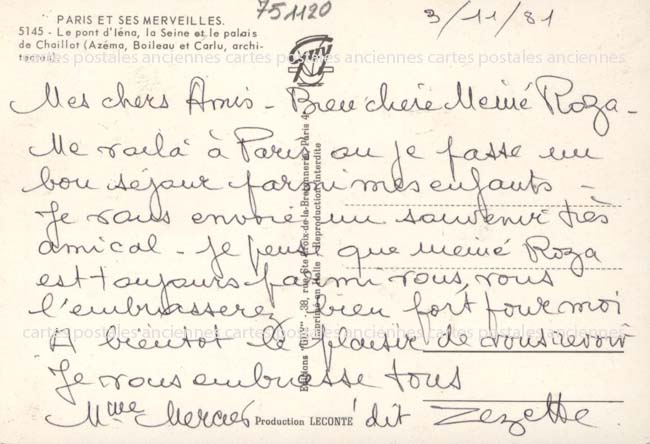 751120
3/11/81
PARIS ET SES MERVEILLES.
5145 - Le pont d'Iéna, la Seine et le palais
de Chaillot (Azéma, Boileau et Carlu, archi-
tectes).
Mes chers Amis - Bien chère Mémé Roza -
Me voilà à Paris ou je passe un
bon séjour parmi mes enfants -
Je vous envoie un souvenir très
amical - Je pense que mémé Roza
est toujours parmi vous, vous
l'embrasserez bien fort pour moi
A bientot le plaisir de vous revoir
Je vous embrasse tous
Mme Mercier dit Zezette
Production LECONTE
38, rue Ste-Croix-de-la-Bretonnerie, Paris 4e
Imprimé en Italie - Reproduction interdite
cartes postales anciennes cartes postales anciennes cartes postales anciennes
cartes postales anciennes cartes postales anciennes cartes postales anciennes